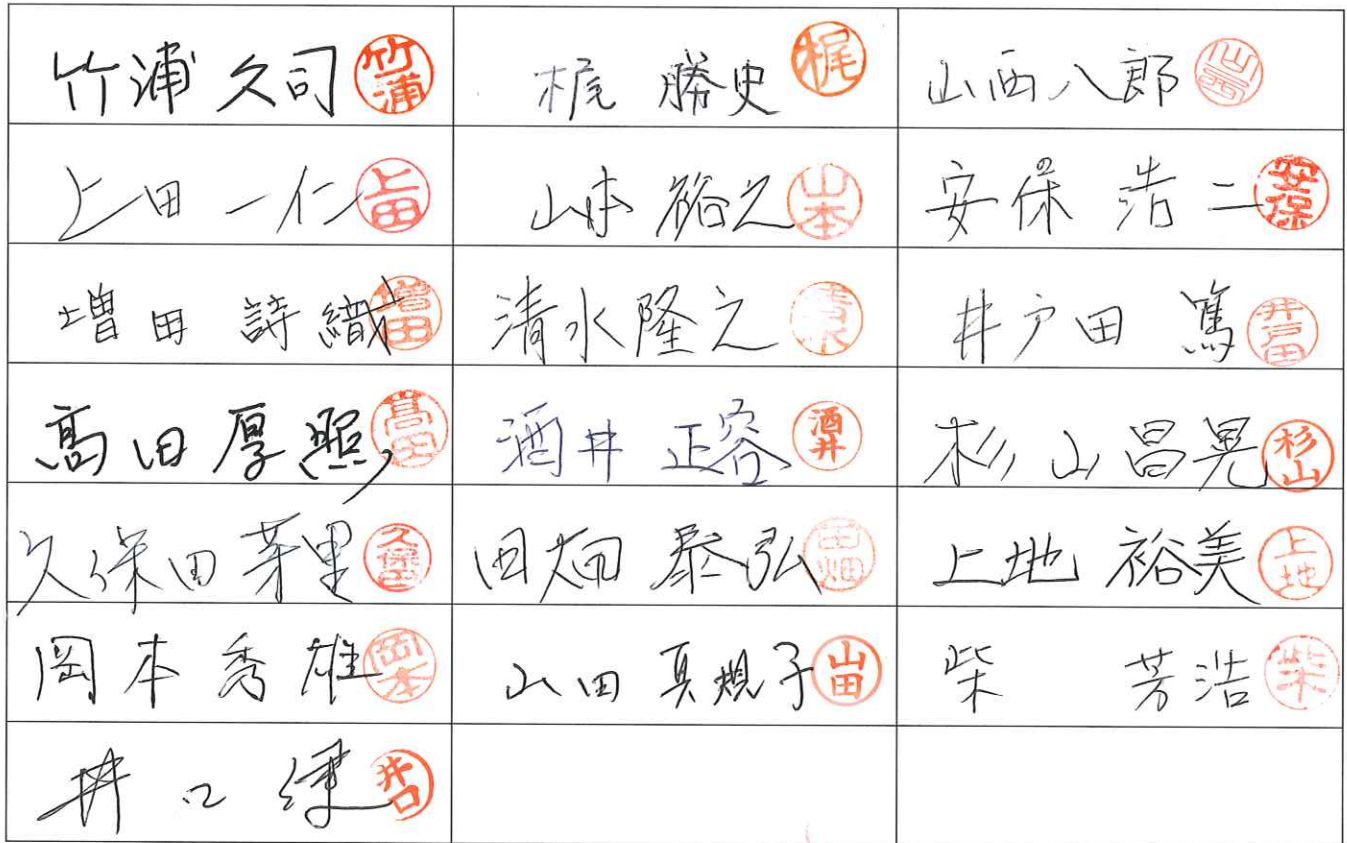 竹浦 久司 竹浦 梶 勝史 梶 山西 八郎 山西
上田 一仁 上田 山本 裕之 山本 安保 浩二 安保
増田 詩織 増田 清水 隆之 清水 井戸田 篤 井戸田
髙田 厚照 髙田 酒井 正容 酒井 杉山 昌晃 杉山
久保田 芽里 久保田 田畑 泰弘 田畑 上地 裕美 上地
岡本 秀雄 岡本 山田 真規子 山田 柴 芳浩 柴
井口 健 井口